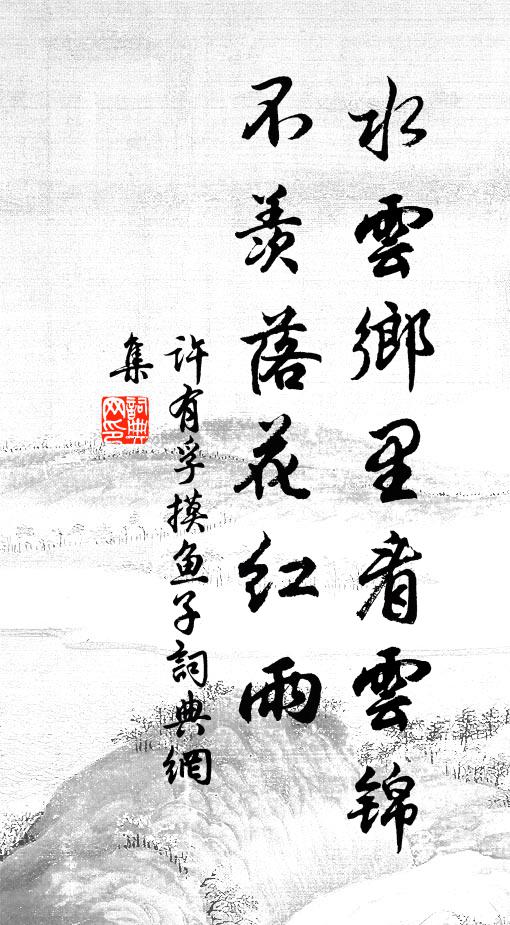 水雲鄉里看雲錦
不羨落花紅雨
许有孚摸鱼子詞典網
集
詞典網印